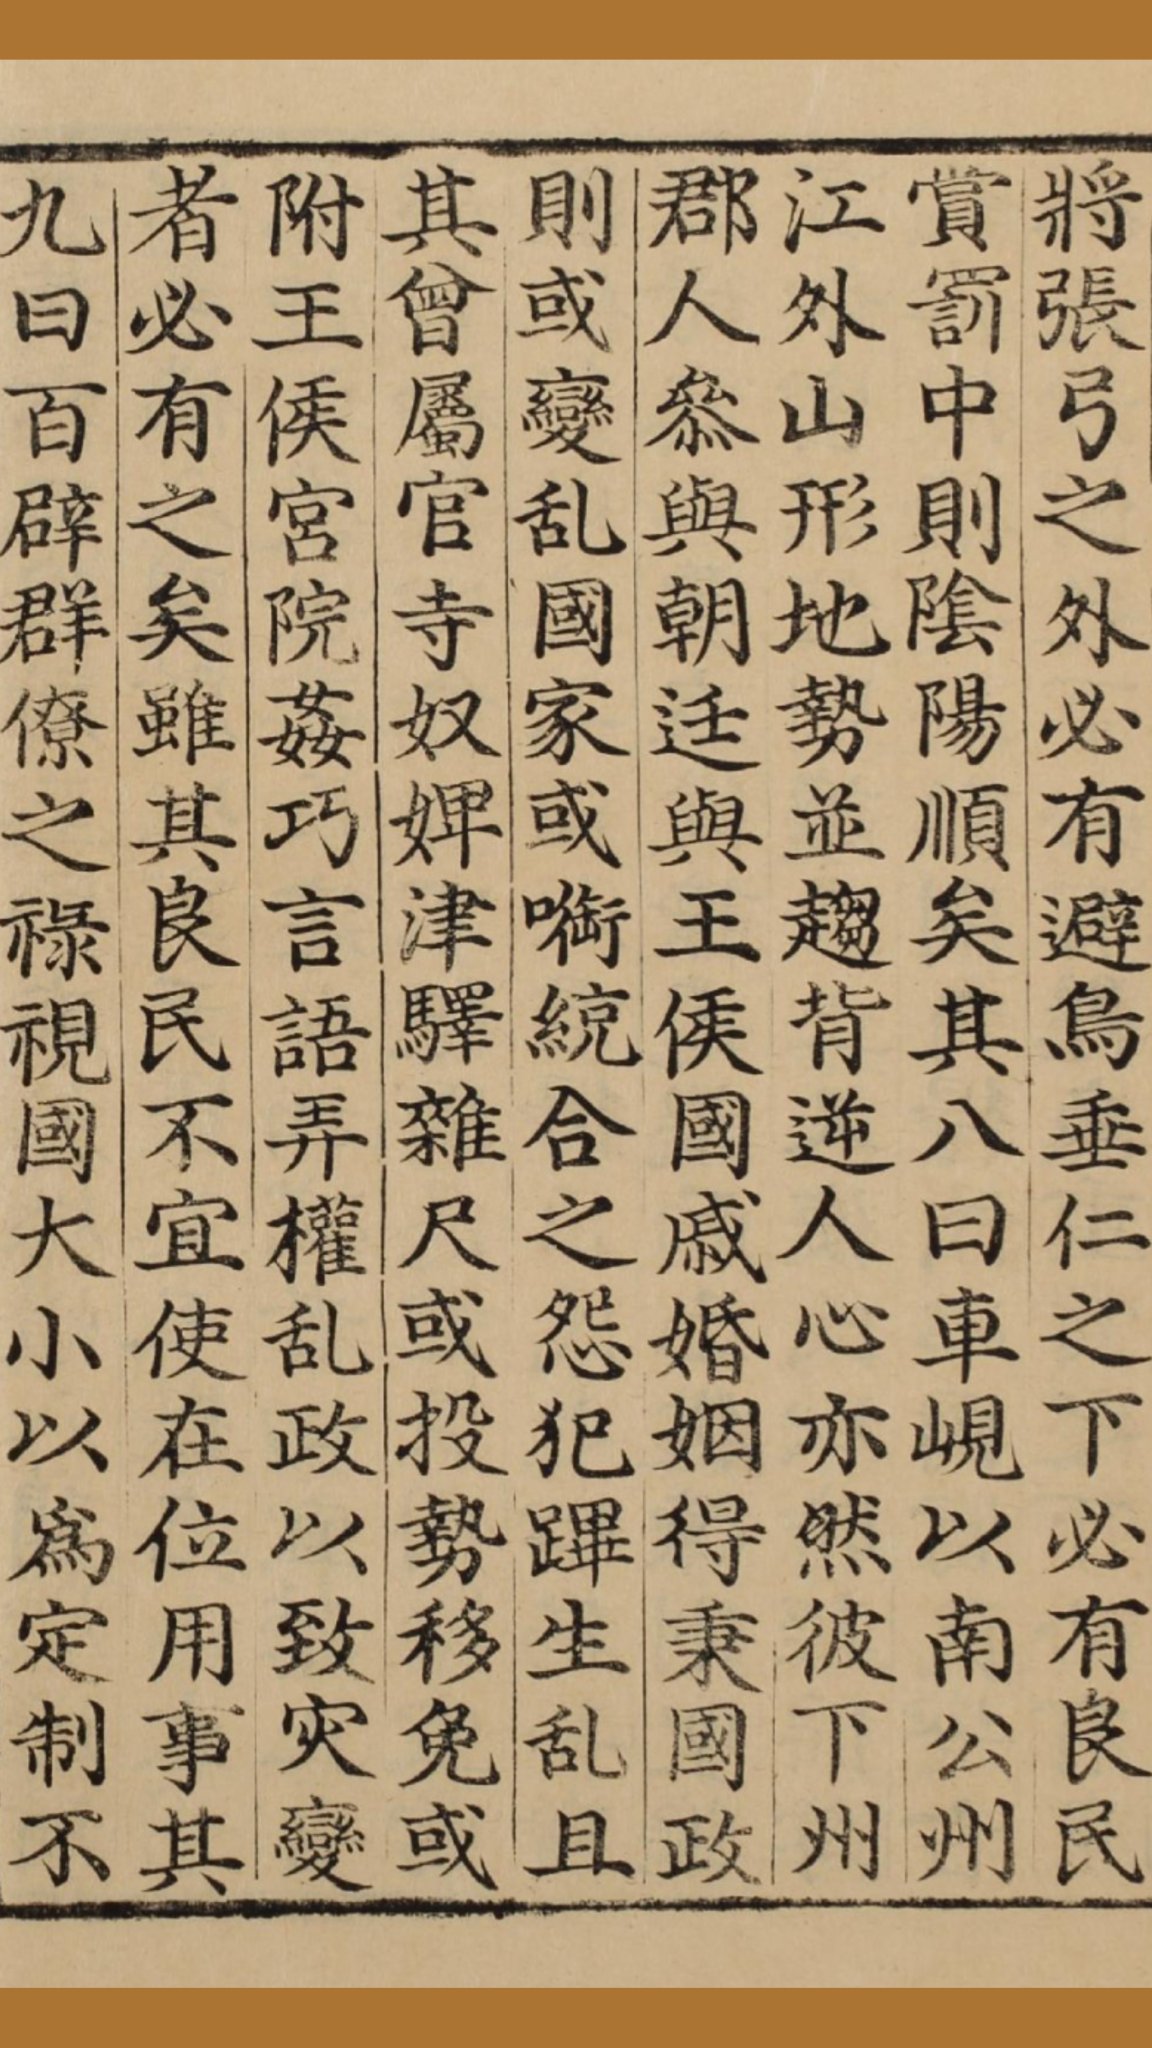 將張弓之外必有避鳥垂仁之下必有良民
賞罰中則陰陽順矣其八曰車峴以南公州
江外山形地勢並趨背逆人心亦然彼下州
郡人叅與朝廷與王侯國戚婚姻得秉國政
則或變乱國家或㗸統合之怨犯蹕生乱且
其曾屬官寺奴婢津驛雜尺或投勢移免或
附王侯宮院姦巧言語弄權乱政以致灾變
者必有之矣雖其良民不宜使在位用事其
九曰百辟群僚之祿視國大小以爲定制不